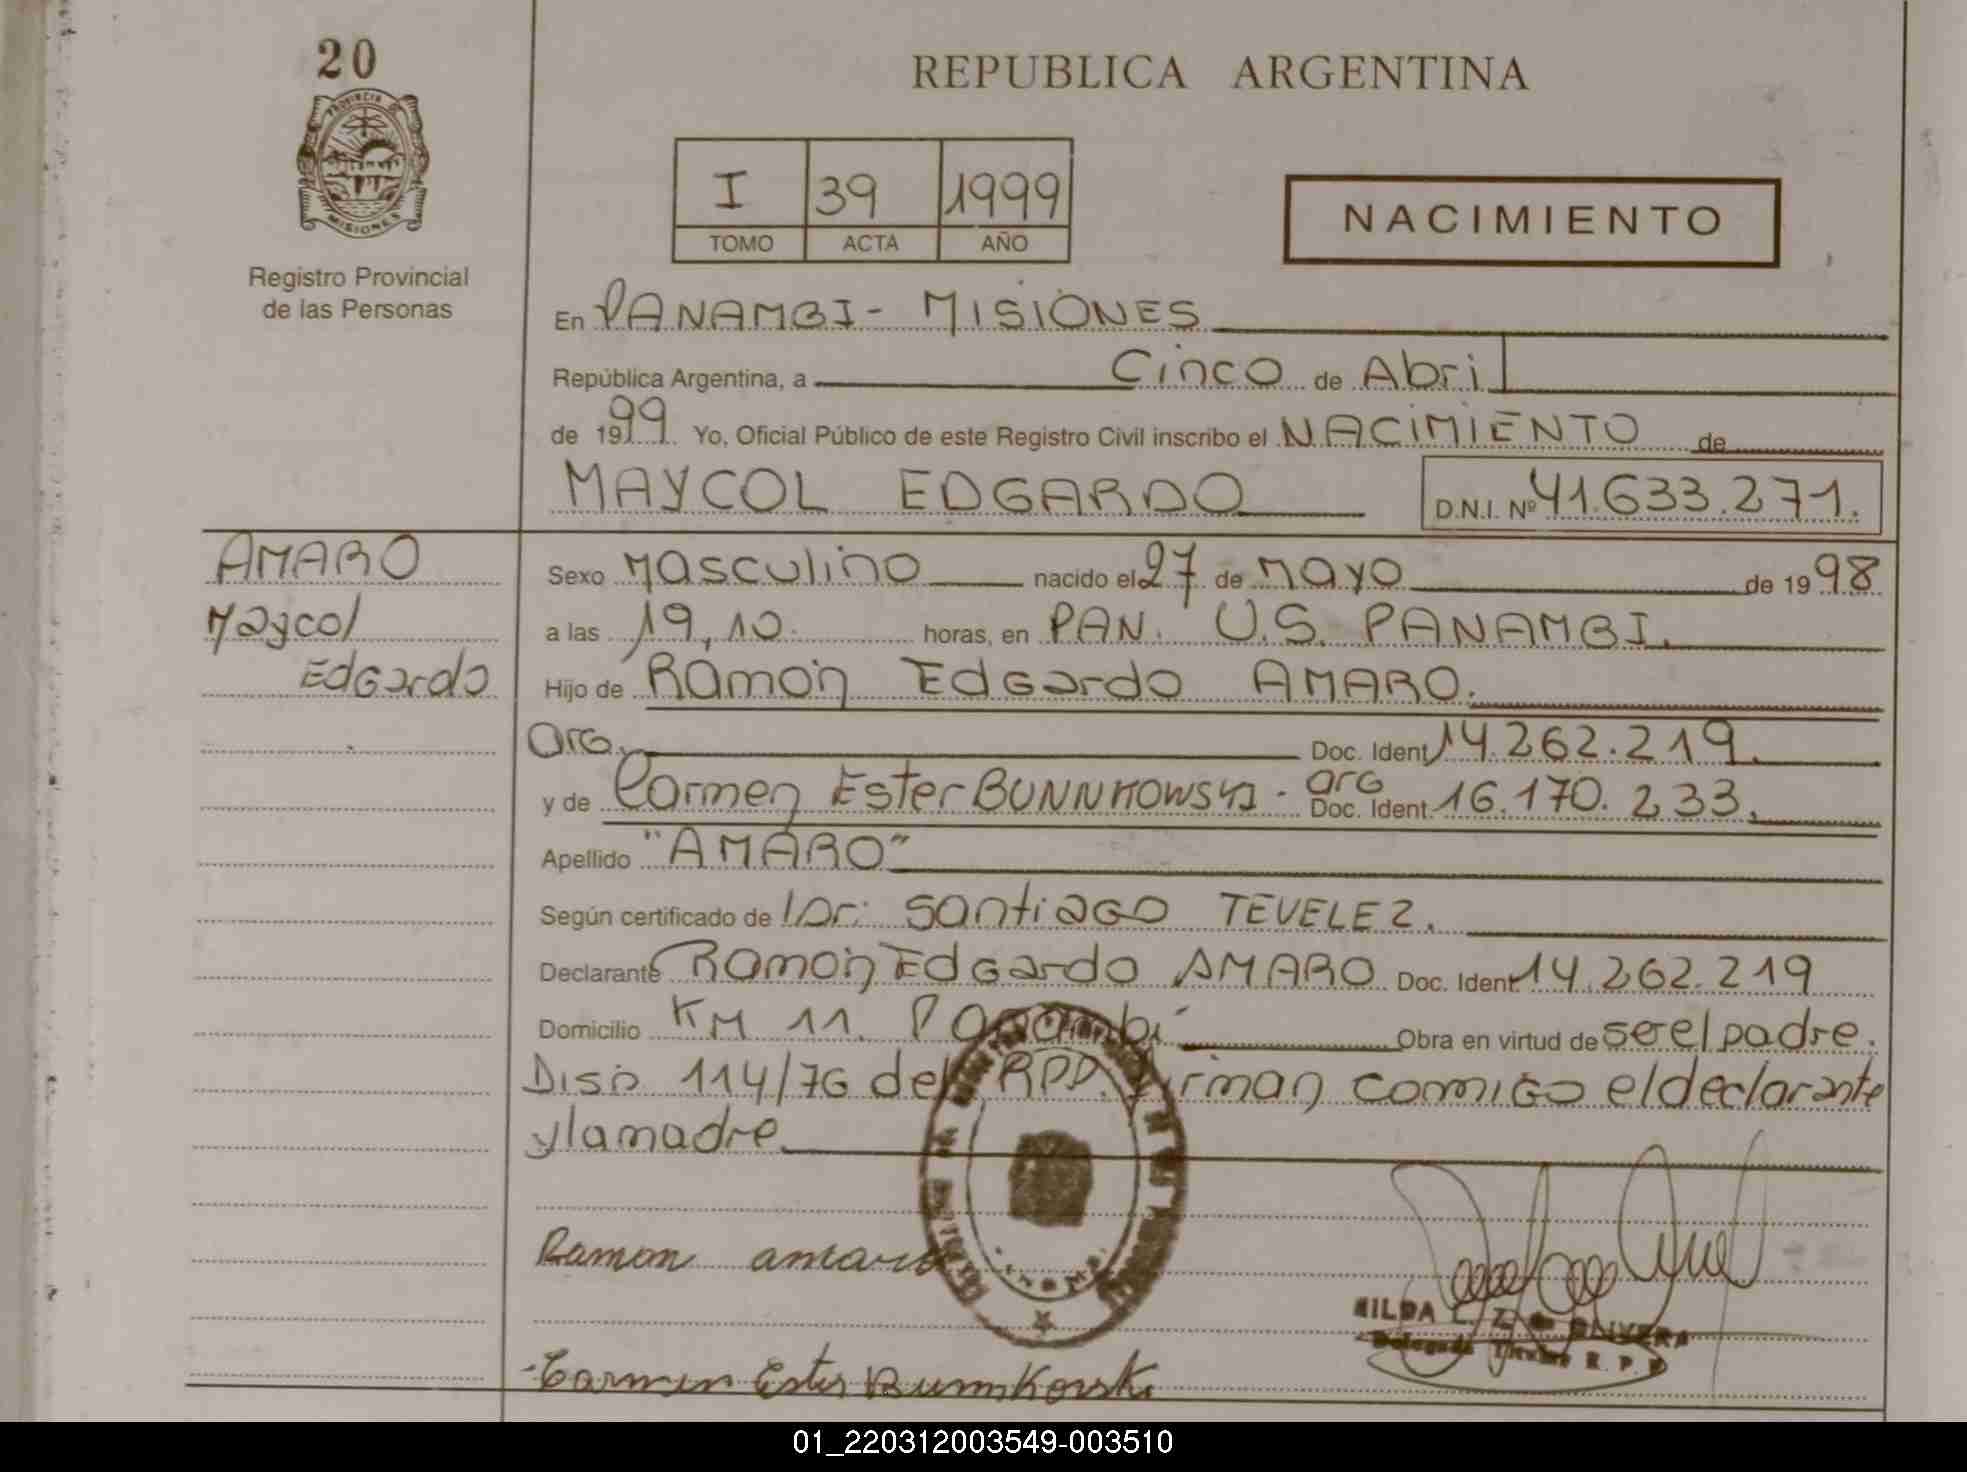 20
REPUBLICA ARGENTINA
PROVINCIA DE
MISIONES
Registro Provincial
de las Personas
I 39 1999
TOMO ACTA AÑO
NACIMIENTO
En PANAMBI - MISIONES
República Argentina, a Cinco de Abril
de 1999 Yo, Oficial Público de este Registro Civil inscribo el NACIMIENTO de
MAYCOL EDGARDO D.N.I. Nº 41.633.271.
AMARO
Maycol
Edgardo
Sexo Masculino nacido el 27 de Mayo de 1998
a las 19,10. horas, en PAN. U.S. PANAMBI.
Hijo de Ramón Edgardo AMARO.
Arg. Doc. Ident. 14.262.219.
y de Carmen Ester BUNNKOWSKI - arg Doc. Ident. 16.170.233.
Apellido "AMARO"
Según certificado de Dr: Santiago TEVELEZ.
Declarante Ramón Edgardo AMARO Doc. Ident. 14.262.219
Domicilio KM 11. Panambí Obra en virtud de ser el padre.
Disp. 114/76 del RPP. Firman comigo el declarante
y la madre
Ramon amaro
Carmen Ester Bunnkowski
HILDA L. Z. de OLIVERA
Delegada Titular R. P. P.
01_220312003549-003510